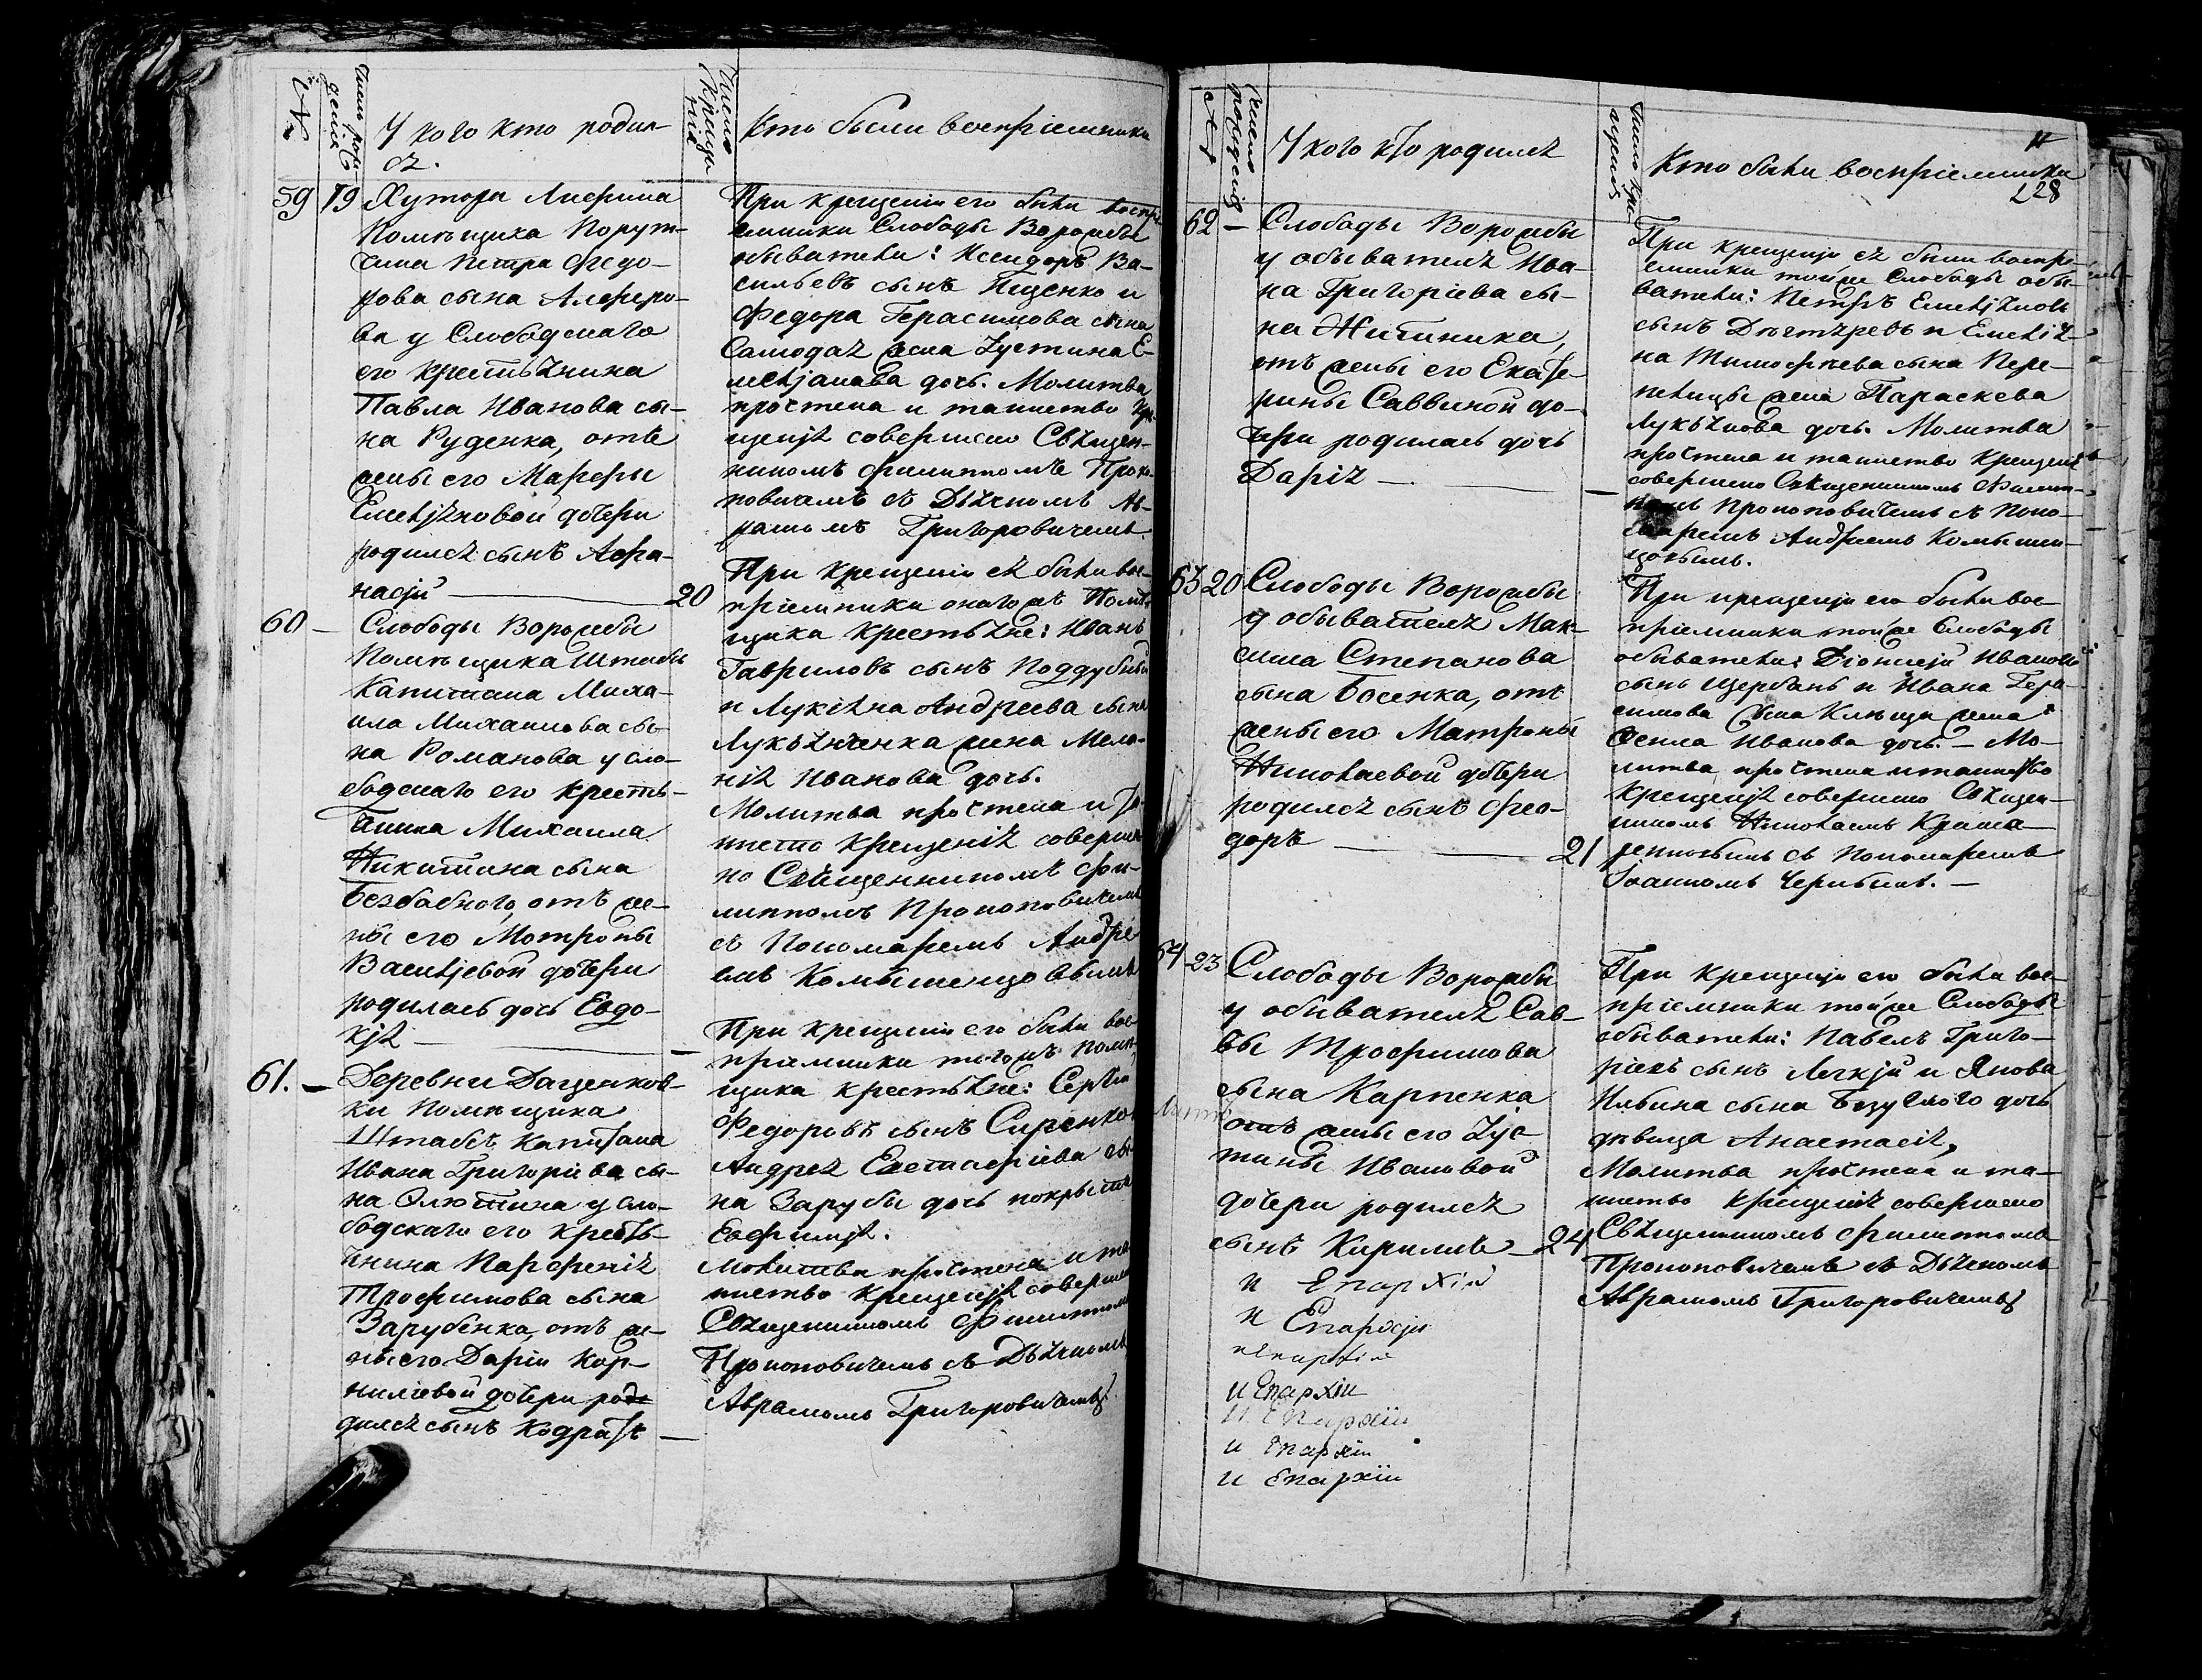 №
Число рож
денія
У кого кто родил
ся.
Число
креще
нія
Кто были воспріемники
59 19 Хутора
Помѣщика Порут-
чика Петра Федо-
рова сына Алферо-
ва у Слободскаго
его крестьянина
Павла Иванова сы-
на Руденка, отъ
жены его Марфы
Емельяновой дочери
родился сынъ Афа-
насій
20
При крещеніи его были воспрі
емники Слободы Ворожбы
обыватели: Исидоръ Ва-
сильевъ сынъ Ищенко и
Федора Герасимова сына
жена Іустина Е-
мельянова дочь. Молитва
прочтена и таинство кре
щенія совершено Священ-
никомъ Филиппомъ Проко-
повичемъ съ Дьякономъ Ав-
рамомъ Григоровичемъ
60 —
Слободы Ворожбы
Помѣщика Штабсъ
Капитана Миха-
ила Михаилова сы-
на Романова у сло-
бодскаго его кресть-
янина Михаила
Никитина сына
Безбабного, отъ же-
ны его Мотроны
Васильевой дочери
родилась дочь Евдо-
кія —
При крещеніи ея были вос-
пріемники онагожъ Помѣ-
щика крестьяне: Иванъ
Гавриловъ сынъ Поддубный
и Лукіяна Андреева сына
Лукьянченка жена Мела-
нія Иванова дочь.
Молитва прочтена и та-
инство крещенія соверше
но Священникомъ Фи-
липпомъ Прокоповичемъ
съ Пономаремъ Андре
емъ Комышецовымъ
61. —
Деревни Даценков-
ки Помѣщика
Штабсъ Капитана
Ивана Григоріева сы-
на Олютина у сло-
бодскаго его кресть-
янина Парфенія
Трофимова сына
Зарубенка, отъ же-
ны его Даріи Кор-
ниліевой дочери роди
дился сынъ Кодратъ —
При крещеніи его были вос-
пріемники тогожъ Помѣ-
щика крестьяне: Сергій
Федоровъ сынъ Сиренко и
Андрея Евстафіева сы-
на Зарубы дочь
Евфимія.
Молитва прочтена и та-
инство крещенія соверше
Священникомъ Филиппомъ
Прокоповичемъ съ Дьякономъ
Аврамомъ Григоровичемъ
№
Число
рожденія
У кого кто родился
Число кре
щенія
Кто были воспріемники
128
62 — Слободы Ворожбы
у обывателя Ива-
на Григоріева сы-
на Житника,
отъ жены его Екате-
рины Саввиной до-
чери родилась дочь
Дарія —
При крещеніи ея были воспрі-
емники тойже Слободы обы-
ватели: Петръ Емельяновъ
сынъ Дегтяревъ и Емелья-
на Тимофеева сына Пере-
пелицы жена Параскева
Лукьянова дочь. Молитва
прочтена и таинство крещенія
совершено Священникомъ Филип-
помъ Прокоповичемъ съ Поно-
маремъ Андреемъ Комыше-
цовымъ.
63 20 Слободы Ворожбы
у обывателя Мак-
сима Степанова
сына Босенка, отъ
жены его Матроны
Николаевой дочери
родился сынъ Фео-
доръ — 21
При крещеніи его были вос-
пріемники тойже Слободы
обыватели: Діонисій Ивановъ
сынъ Щербань и Ивана Гера-
симова сына жена
Фекла Иванова дочь. — Мо-
литва прочтена и таинство
крещенія совершено Священ-
никомъ Николаемъ
съ Пономаремъ
Іоанномъ —
64 23 Слободы Ворожбы
у обывателя Сав-
вы Трофимова
сына Карпенка
отъ жены его Іус-
тины Ивановой
дочери родился
сынъ Кирилъ — 24
При крещеніи его были вос-
пріемники тойже Слободы
обыватели: Павелъ Григо-
ріевъ сынъ Легкій и Якова
Ильина сына Безуглого дочь
дѣвица Анастасія,
Молитва прочтена и та-
инство крещенія совершено
Священникомъ Филиппомъ
Прокоповичемъ съ Дьякономъ
Аврамомъ Григоровичемъ
и Епархіи
и Епархіи
и Епархіи
и Епархіи
и Епархіи
и Епархіи
и Епархіи